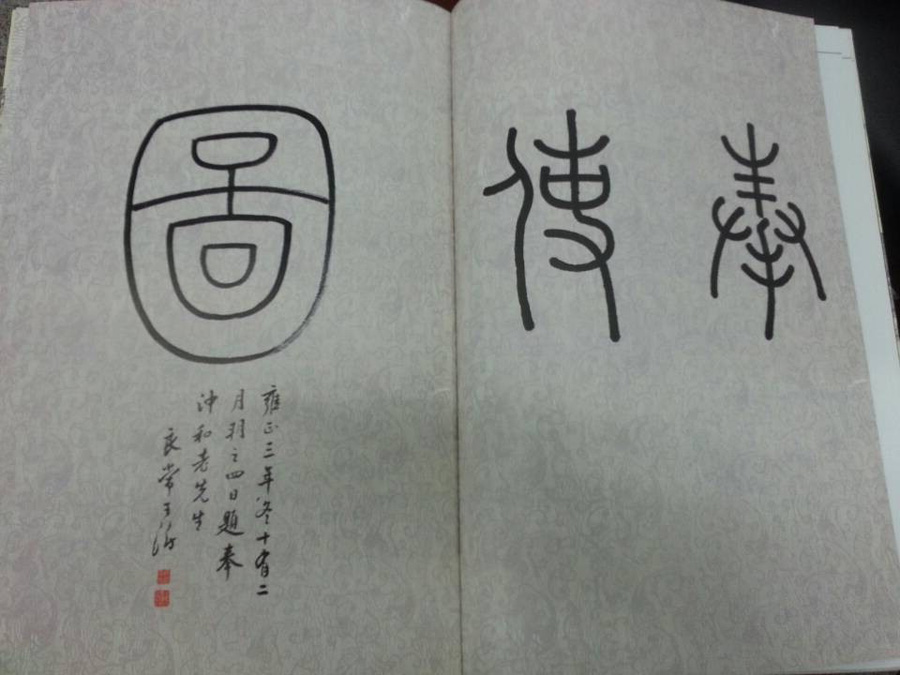 奉使圖
雍正三年冬十有二
月朔之四日題奉
沖和老先生
良常王澍